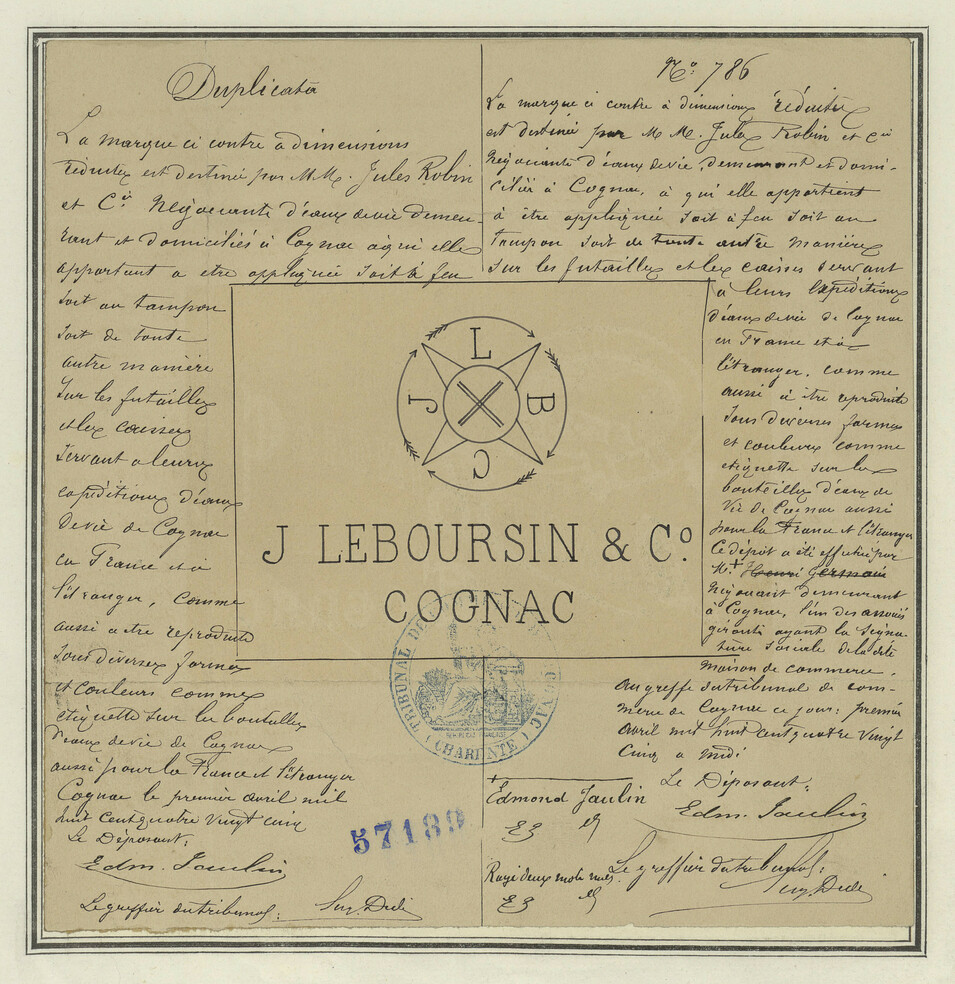 Duplicata
La marque ci contre à dimensions
réduites est destinée par M.M. Jules Robin
et Cie Négociants d'eaux de vie demeu-
rant et domiciliés à Cognac à qui elle
appartient a etre appliquée soit à feu
soit au tampon
soit de toute
autre manière
sur les futailles
et les caisses
servant a leurs
expéditions d'eaux
de vie de Cognac
en France et a
l'étranger, comme
aussi a etre reproduite
sous diverses formes
et couleurs comme
etiquette sur les bouteilles
d'eaux de vie de Cognac
aussi pour la France et l'étranger
Cognac le premier avril mil
huit cent quatre vingt cinq
Le Déposant:
Edm. Jaulin
Le greffier du tribunal:
No: 786
La marque ci contre à dimensions réduites
est destinée par M.M. Jules Robin et Cie
Négociants d'eaux de vie, demeurant et domi-
ciliés à Cognac, à qui elle appartient
à être appliquée soit à feu soit au
tampon soit de toute autre manière
sur les futailles et les caisses servant
a leurs expéditions
d'eaux de vie de Cognac
en France et à
l'étranger, comme
aussi à être reproduite
sous diverses formes
et couleurs comme
etiquette sur les
bouteilles d'eaux de
vie de Cognac aussi
pour la France et l'étranger
Ce dépôt a été effectué par
M. + Henri Germain
Négociant demeurant
à Cognac, l'un des associés
gérants ayant la signa-
ture sociale de la dite
maison de commerce.
Au greffe du tribunal de com-
merce de Cognac ce jour: premier
avril mil huit cent quatre vingt
cinq a midi
Le Déposant:
Edm. Jaulin
+ Edmond Jaulin
Rayé deux mots nuls
Le greffier du tribunal:
L
B
C
J
J LEBOURSIN & Co
COGNAC
TRIBUNAL DE COGNAC
(CHARENTE)
57139